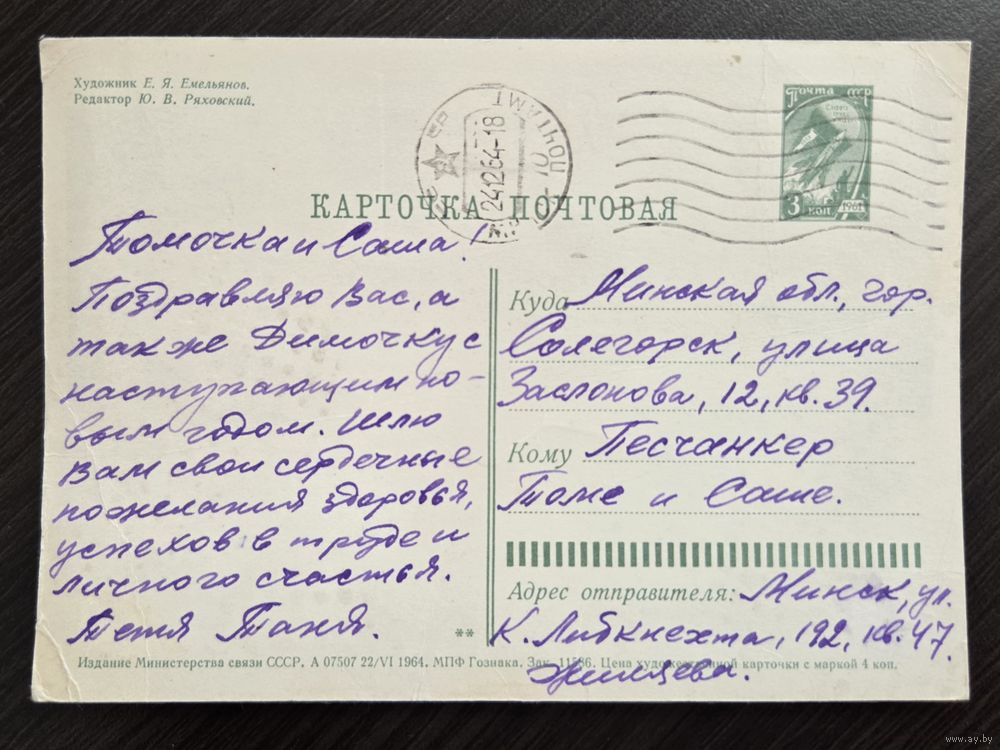 Художник Е. Я. Емельянов.
Редактор Ю. В. Ряховский.
ПОЧТАМТ
24 12 64-18
Почта СССР
3 коп
1961
КАРТОЧКА ПОЧТОВАЯ
Томочка и Саша!
Поздравляю Вас, а
также Димочку с
наступающим но-
вым годом. Шлю
Вам свои сердечные
пожелания здоровья,
успехов в труде и
личного счастья.
Тетя Таня.
Куда Минская обл., гор.
Солегорск, улица
Заслонова, 12, кв. 39.
Кому Песчанкер
Томе и Саше.
Адрес отправителя: Минск, ул.
К. Либкнехта, 192, кв. 47.
Жиляева.
**
Издание Министерства связи СССР. А 07507 22/VI 1964. МПФ Гознака. Зак. 11586. Цена художественной карточки с маркой 4 коп.
www.ay.by